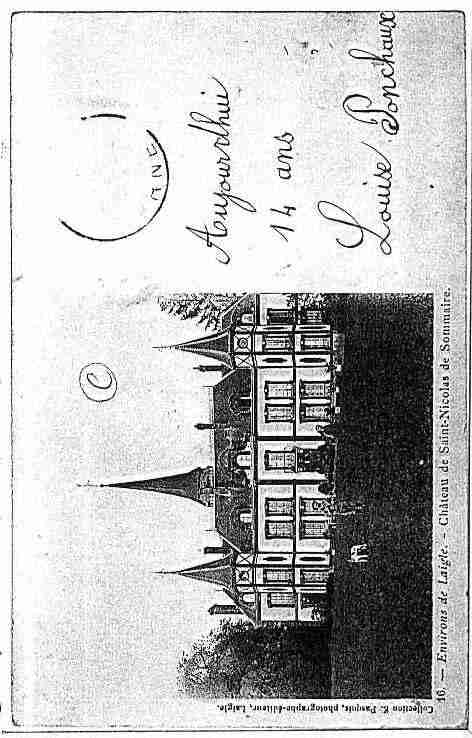 Aujourdhui
14 ans
Louise Ponchaux
C
16. — Environs de Laigle. – Château de Saint-Nicolas de Sommaire.
Collection E. Pasquis, photographe-éditeur, Laigle.